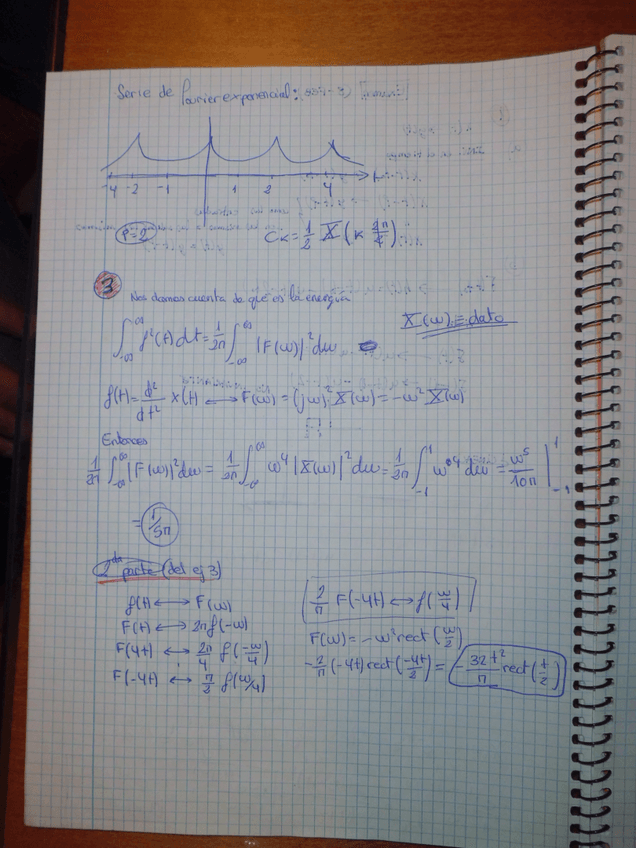 Serie de Fourier exponencial:
-4 -2 -1 1 2 4 t
P=2 Cₖ = 1/2 X(k 2π/4)
3 Nos damos cuenta de que es la energía
∫_{-∞}^{∞} f²(t) dt = 1/2π ∫_{-∞}^{∞} |F(ω)|² dω X(ω) = dato
f(t) = d²/dt² x(t ⟷ F(ω) = (jω)² X(ω) = -ω² X(ω)
Entonces
1/2π ∫_{-∞}^{∞} |F(ω)|² dω = 1/2π ∫_{-∞}^{∞} ω⁴ |X(ω)|² dω = 1/2π ∫_{-1}^{1} ω⁴ dω = ω⁵/10π |_{-1}^{1}
= 1/5π
2da parte (del ej 3)
f(t) ⟷ F(ω)
F(t) ⟷ 2π f(-ω)
F(4t) ⟷ 2π/4 f(-ω/4)
F(-4t) ⟷ π/2 f(ω/4)
2/π F(-4t) ⟷ f(ω/4)
F(ω) = -ω² rect(ω/2)
-2/π (-4t) rect(-4t/2) = -32t²/π rect(t/2)